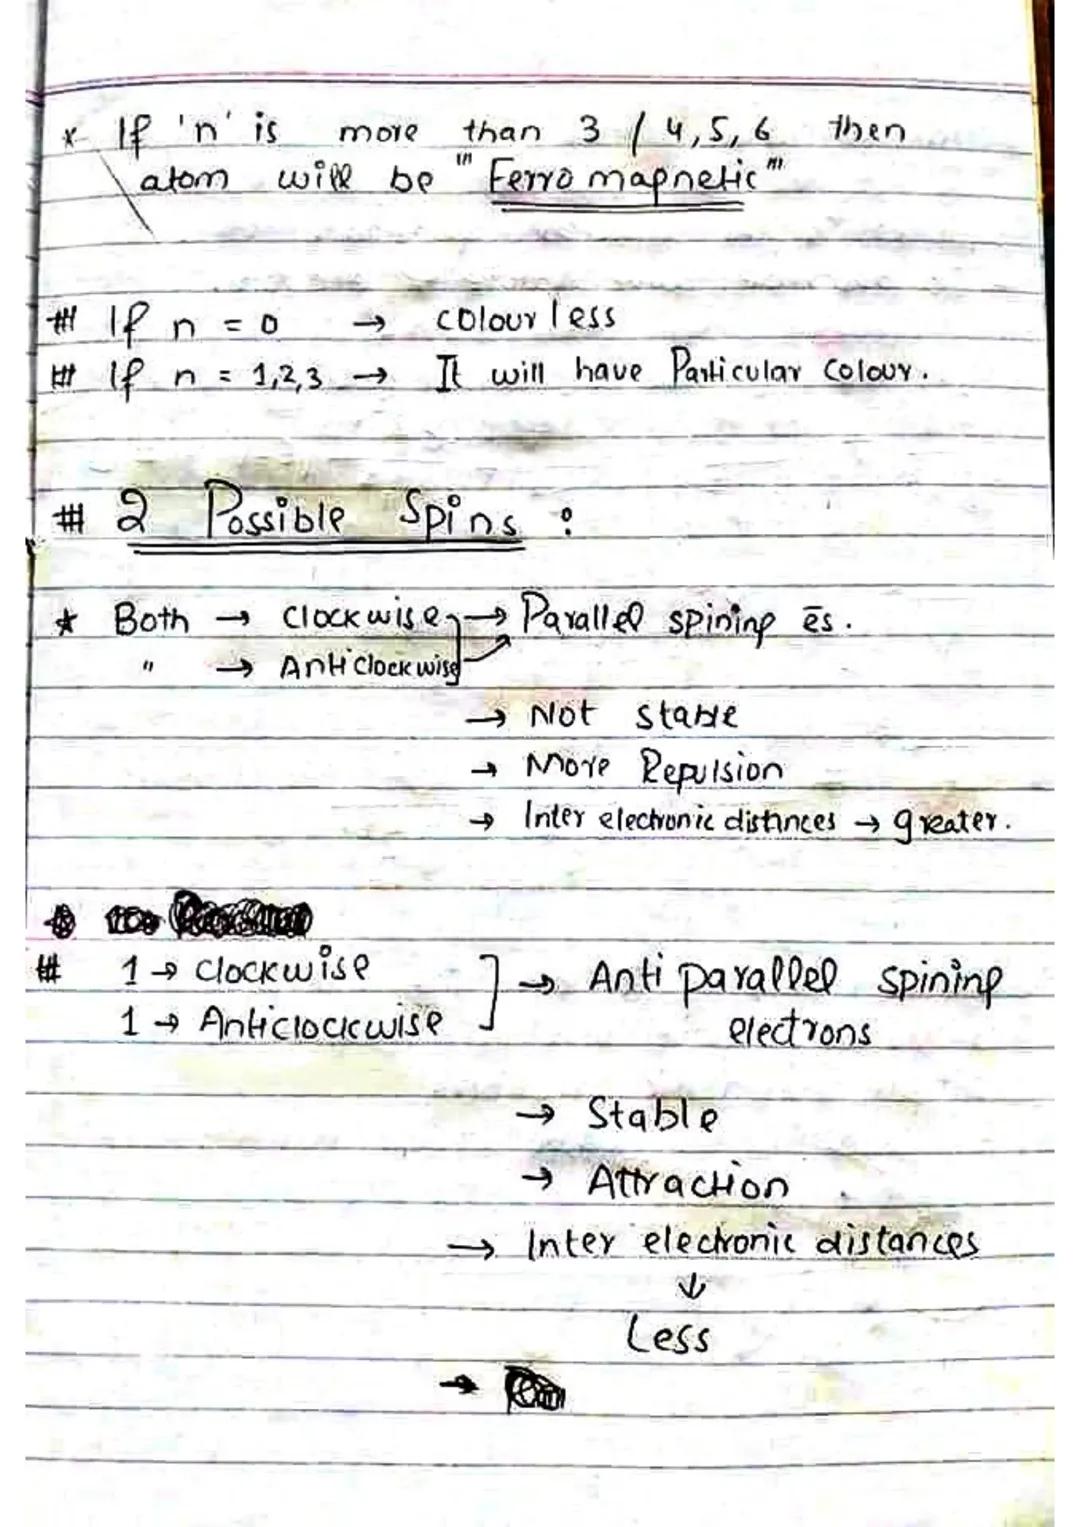 * If 'n' is more than 3 / 4,5,6 then
atom will be "Ferro magnetic"
# If n = 0 → colour less
# If n = 1,2,3 → It will have Particular colour.
# 2 Possible Spins :
* Both → clockwise → Parallel spining ēs.
" → Anticlockwise
→ Not stable
→ More Repulsion
→ Inter electronic distnces → greater.
# 1 → clockwise ] → Anti parallel spining
1 → Anticlockwise electrons
→ Stable
→ Attraction
→ Inter electronic distances
↓
Less
→